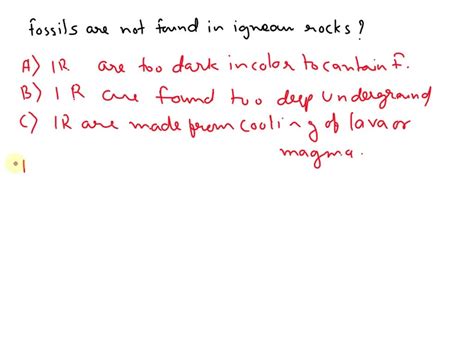 fossils are not found in igneous rocks?
A) IR are too dark in color to contain f.
B) IR are found too deep underground
C) IR are made from cooling of lava or
magma.